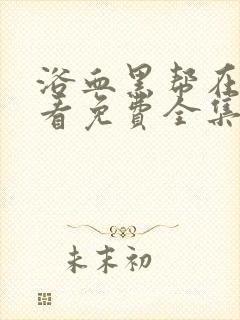 浴血黑帮在
看免费全集
未末初